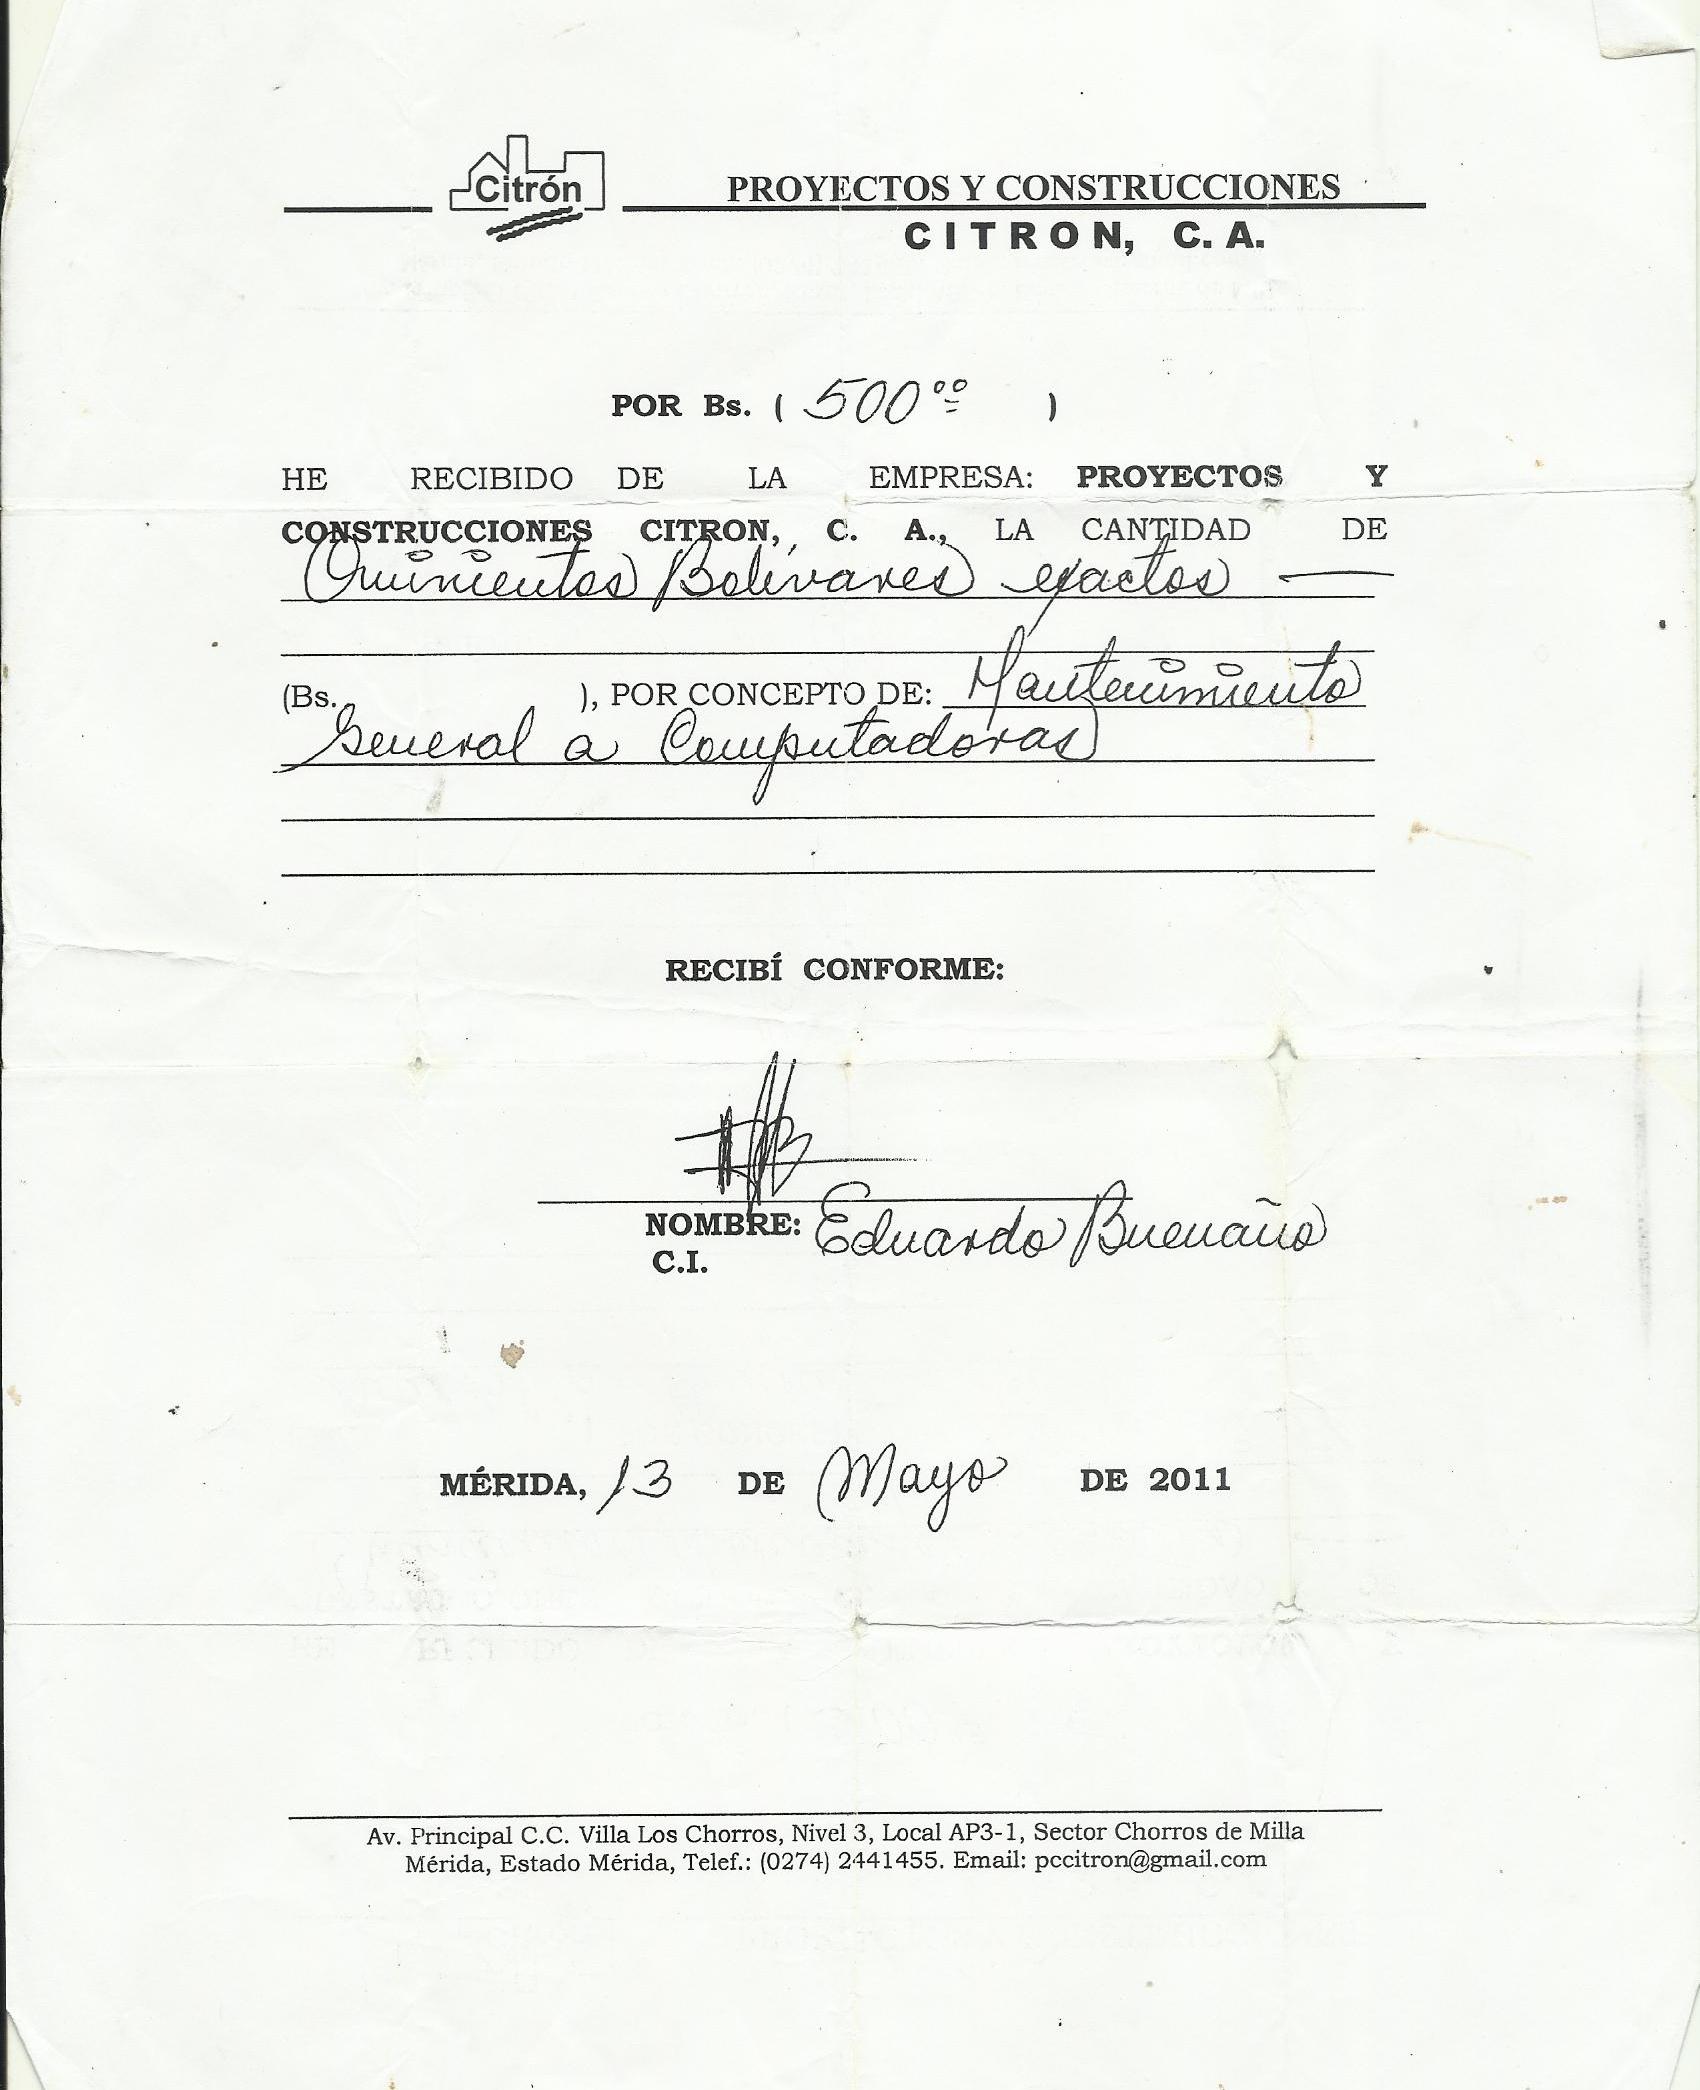 Citrón
PROYECTOS Y CONSTRUCCIONES
CITRON, C. A.
POR Bs. ( 500 00 )
HE RECIBIDO DE LA EMPRESA: PROYECTOS Y
CONSTRUCCIONES CITRON, C. A., LA CANTIDAD DE
Quinientos Bolívares exactos —
(Bs. ), POR CONCEPTO DE: Mantenimiento
General a Computadoras
RECIBÍ CONFORME:
NOMBRE: Eduardo Buenaño
C.I.
MÉRIDA, 13 DE Mayo DE 2011
Av. Principal C.C. Villa Los Chorros, Nivel 3, Local AP3-1, Sector Chorros de Milla
Mérida, Estado Mérida, Telef.: (0274) 2441455. Email: pccitron@gmail.com